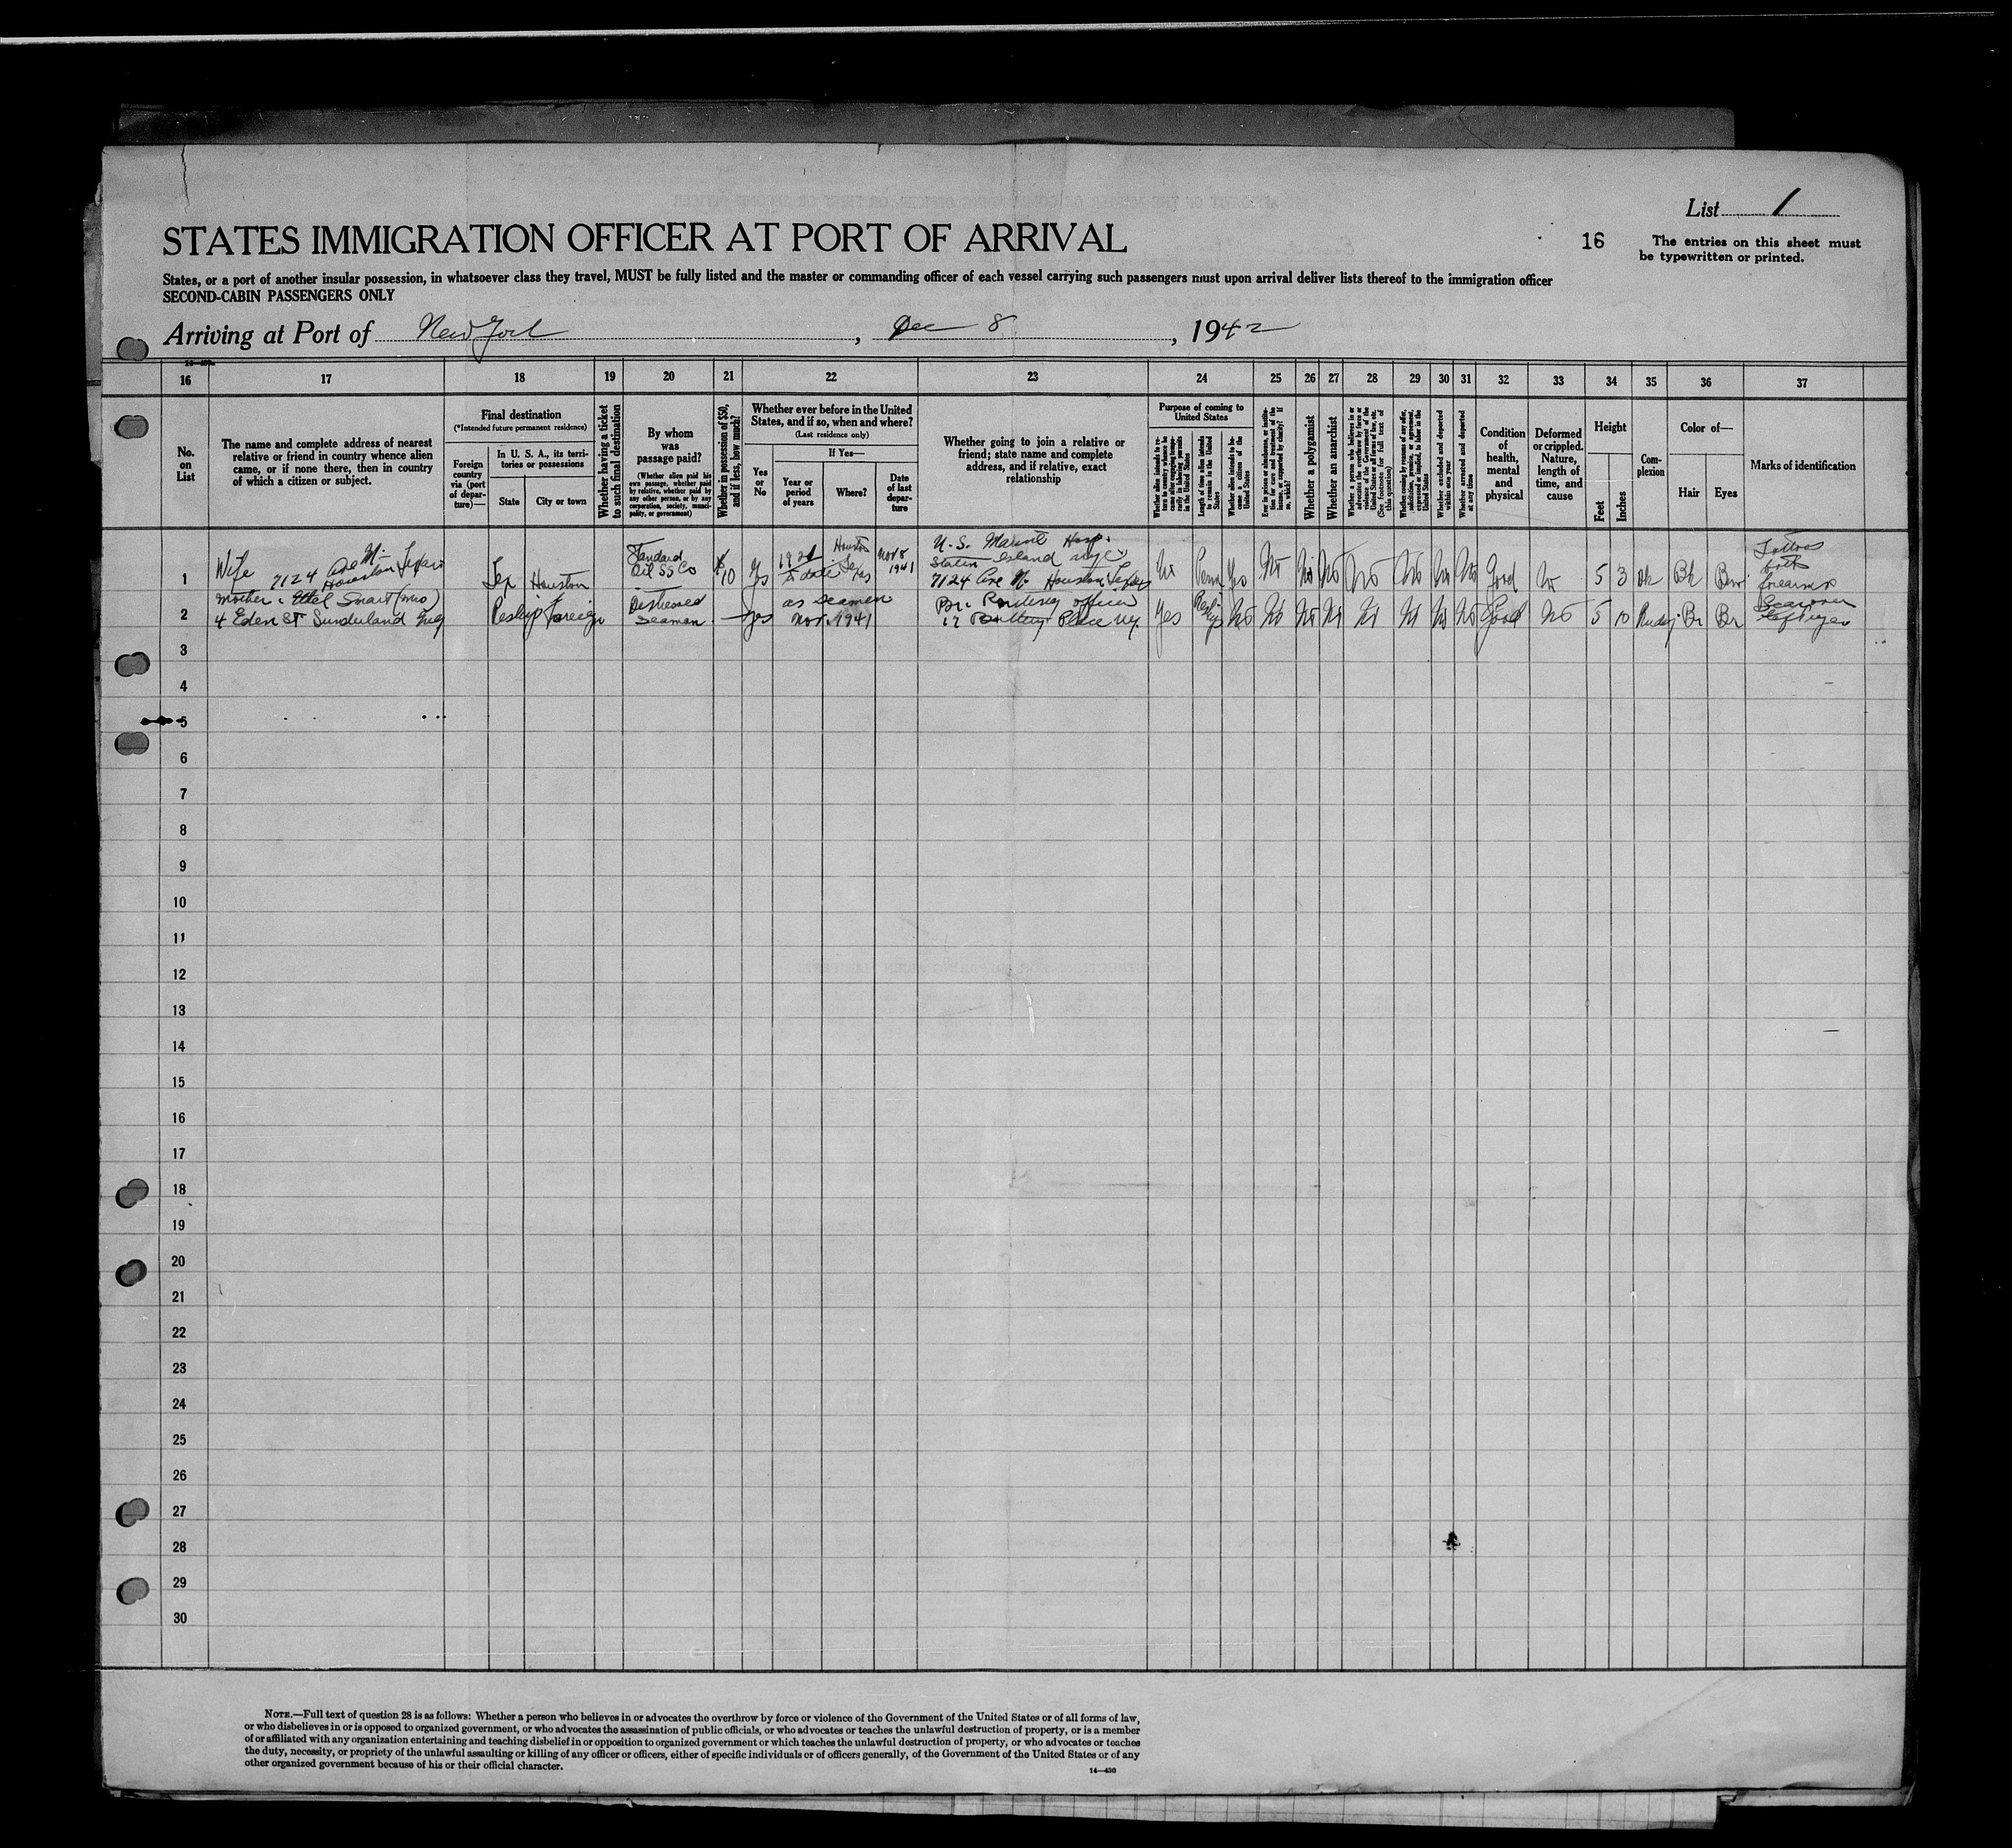 List 1
STATES IMMIGRATION OFFICER AT PORT OF ARRIVAL
16
The entries on this sheet must
be typewritten or printed.
States, or a port of another insular possession, in whatsoever class they travel, MUST be fully listed and the master or commanding officer of each vessel carrying such passengers must upon arrival deliver lists thereof to the immigration officer
SECOND-CABIN PASSENGERS ONLY
Arriving at Port of New York, Dec 8, 1942
16 17 18 19 20 21 22 23 24 25 26 27 28 29 30 31 32 33 34 35 36 37
No.
on
List
The name and complete address of nearest
relative or friend in country whence alien
came, or if none there, then in country
of which a citizen or subject.
Final destination
(*Intended future permanent residence)
Foreign
country
via (port
of depar-
ture)—
In U. S. A., its terri-
tories or possessions
State
City or town
Whether having a ticket
to such final destination
By whom
was
passage paid?
(Whether alien paid his
own passage, whether paid
by relative, whether paid by
any other person, or by any
corporation, society, munici-
pality, or government)
Whether in possession of $50,
and if less, how much?
Whether ever before in the United
States, and if so, when and where?
(Last residence only)
Yes
or
No
If Yes—
Year or
period
of years
Where?
Date
of last
depar-
ture
Whether going to join a relative or
friend; state name and complete
address, and if relative, exact
relationship
Purpose of coming to
United States
Length of time alien intends
to remain in the United
States
Whether alien intends to be-
come a citizen of the
United States
Whether a polygamist
Whether an anarchist
Whether excluded and deported
within one year
Whether arrested and deported
at any time
Condition
of
health,
mental
and
physical
Deformed
or crippled.
Nature,
length of
time, and
cause
Height
Feet
Inches
Com-
plexion
Color of—
Hair
Eyes
Marks of identification
1
Wife
7124 Ave N.
Houston Texas
Tex Houston
Standard
Oil SS Co
$10
Yes
1921
to date
Houston
Texas
Nov 8
1941
U.S. Marine Hosp.
Staten Island NYC
7124 Ave N. Houston Texas
No Perm Yes No No No No No No No Good No 5 3 Dk Bk Brn
Tattoos
both
forearms
2
Mother: Ethel Smart (Mrs)
4 Eden St Sunderland Eng
Reship foreign
Distressed
Seaman
— Yes
as Seaman
Nov. 1941
Br. Routing officer
17 Battery Place NY.
Yes Reship No No No No No No No No Good No 5 10 Ruddy Br Br
Scar over
left eye
3
4
5
6
7
8
9
10
11
12
13
14
15
16
17
18
19
20
21
22
23
24
25
26
27
28
29
30
NOTE.—Full text of question 28 is as follows: Whether a person who believes in or advocates the overthrow by force or violence of the Government of the United States or of all forms of law,
or who disbelieves in or is opposed to organized government, or who advocates the assassination of public officials, or who advocates or teaches the unlawful destruction of property, or is a member
of or affiliated with any organization entertaining and teaching disbelief in or opposition to organized government or which teaches the unlawful destruction of property, or who advocates or teaches
the duty, necessity, or propriety of the unlawful assaulting or killing of any officer or officers, either of specific individuals or of officers generally, of the Government of the United States or of any
other organized government because of his or their official character.
14—450